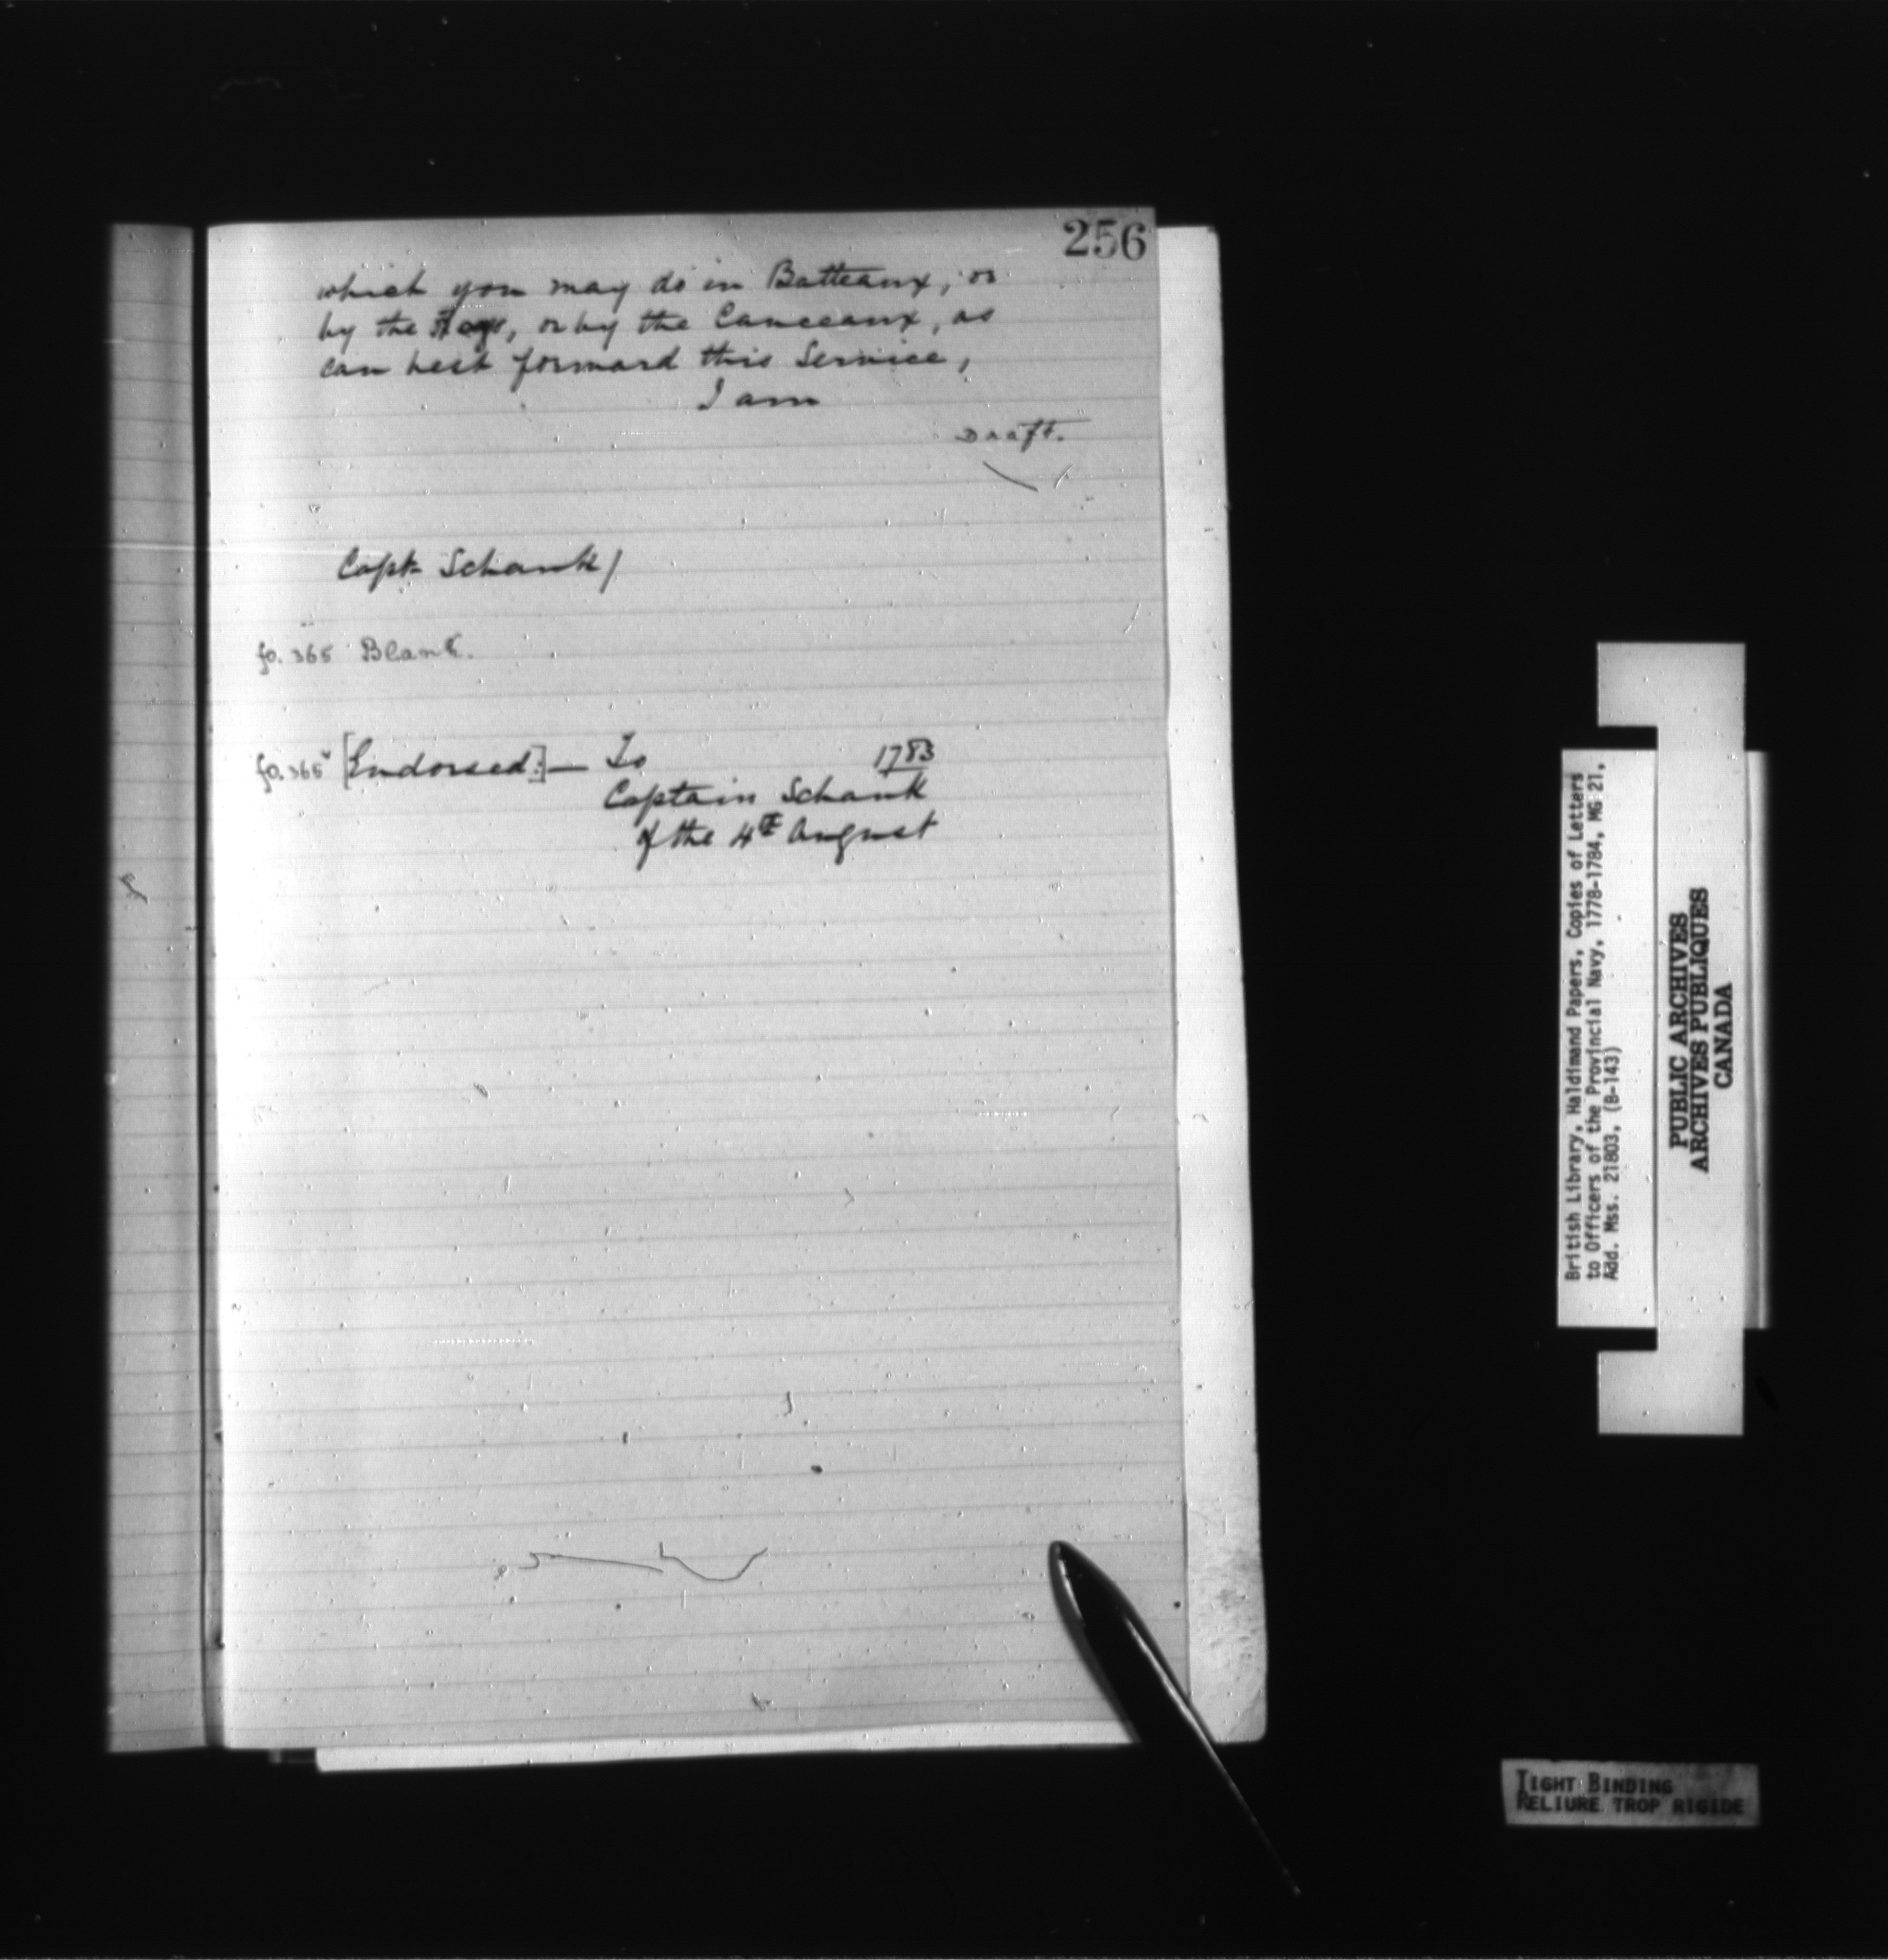 256
which you may do in Batteaux, or
by the Hoys, or by the Canceaux, as
can best forward this Service,
I am
Draft.
Capt. Schank/
fo. 365 Blank.
fo. 365v [Endorsed:]— To 1783
Captain Schank
of the 4th August
British Library, Haldimand Papers, Copies of Letters
to Officers of the Provincial Navy, 1778-1784, MG 21,
Add. Mss. 21803, (B-143)
PUBLIC ARCHIVES
ARCHIVES PUBLIQUES
CANADA
TIGHT BINDING
RELIURE TROP RIGIDE